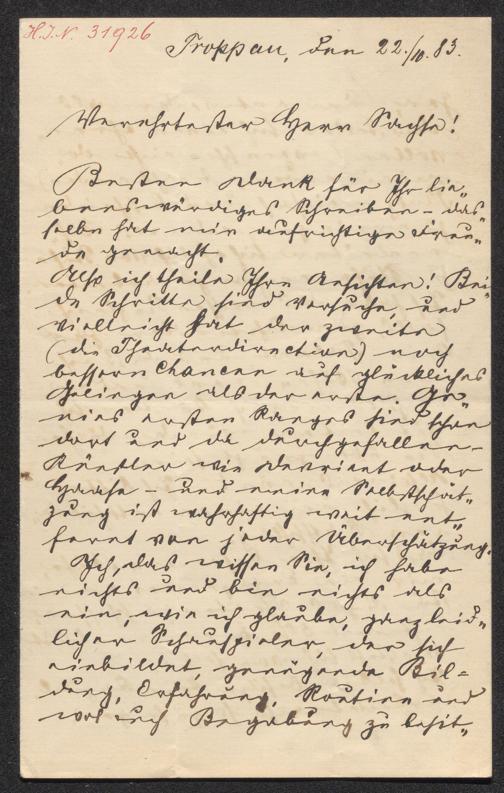 H.I.N. 31926
Troppau, den 22./10.83.
Verehrtester Herr Sachse!
Besten Dank für Ihr lie„
benswürdiges Schreiben – das„
selbe hat mir aufrichtige Freu„
de gemacht.
Ach ich theile Ihre Ansichten! Bei„
de Schritte sind Versuche, und
vielleicht hat der zweite
(die Theaterdirection) noch
bessern Chancen auf glückliches
Gelingen als der erste. Ge„
nies ersten Ranges sind schon
dort und da durchgefallen –
Künstler wie Devrient oder
Haase – und meine Selbstschät„
zung ist wahrhaftig weit ent„
fernt von jeder Überschätzung.
Ich, das wissen Sie, ich habe
nichts und bin nichts als
ein, wie ich glaube, ganz leid„
licher Schauspieler, der sich
einbildet, genügende Bil-
dung, Erfahrung, Routine und
wol auch Begabung zu besit„